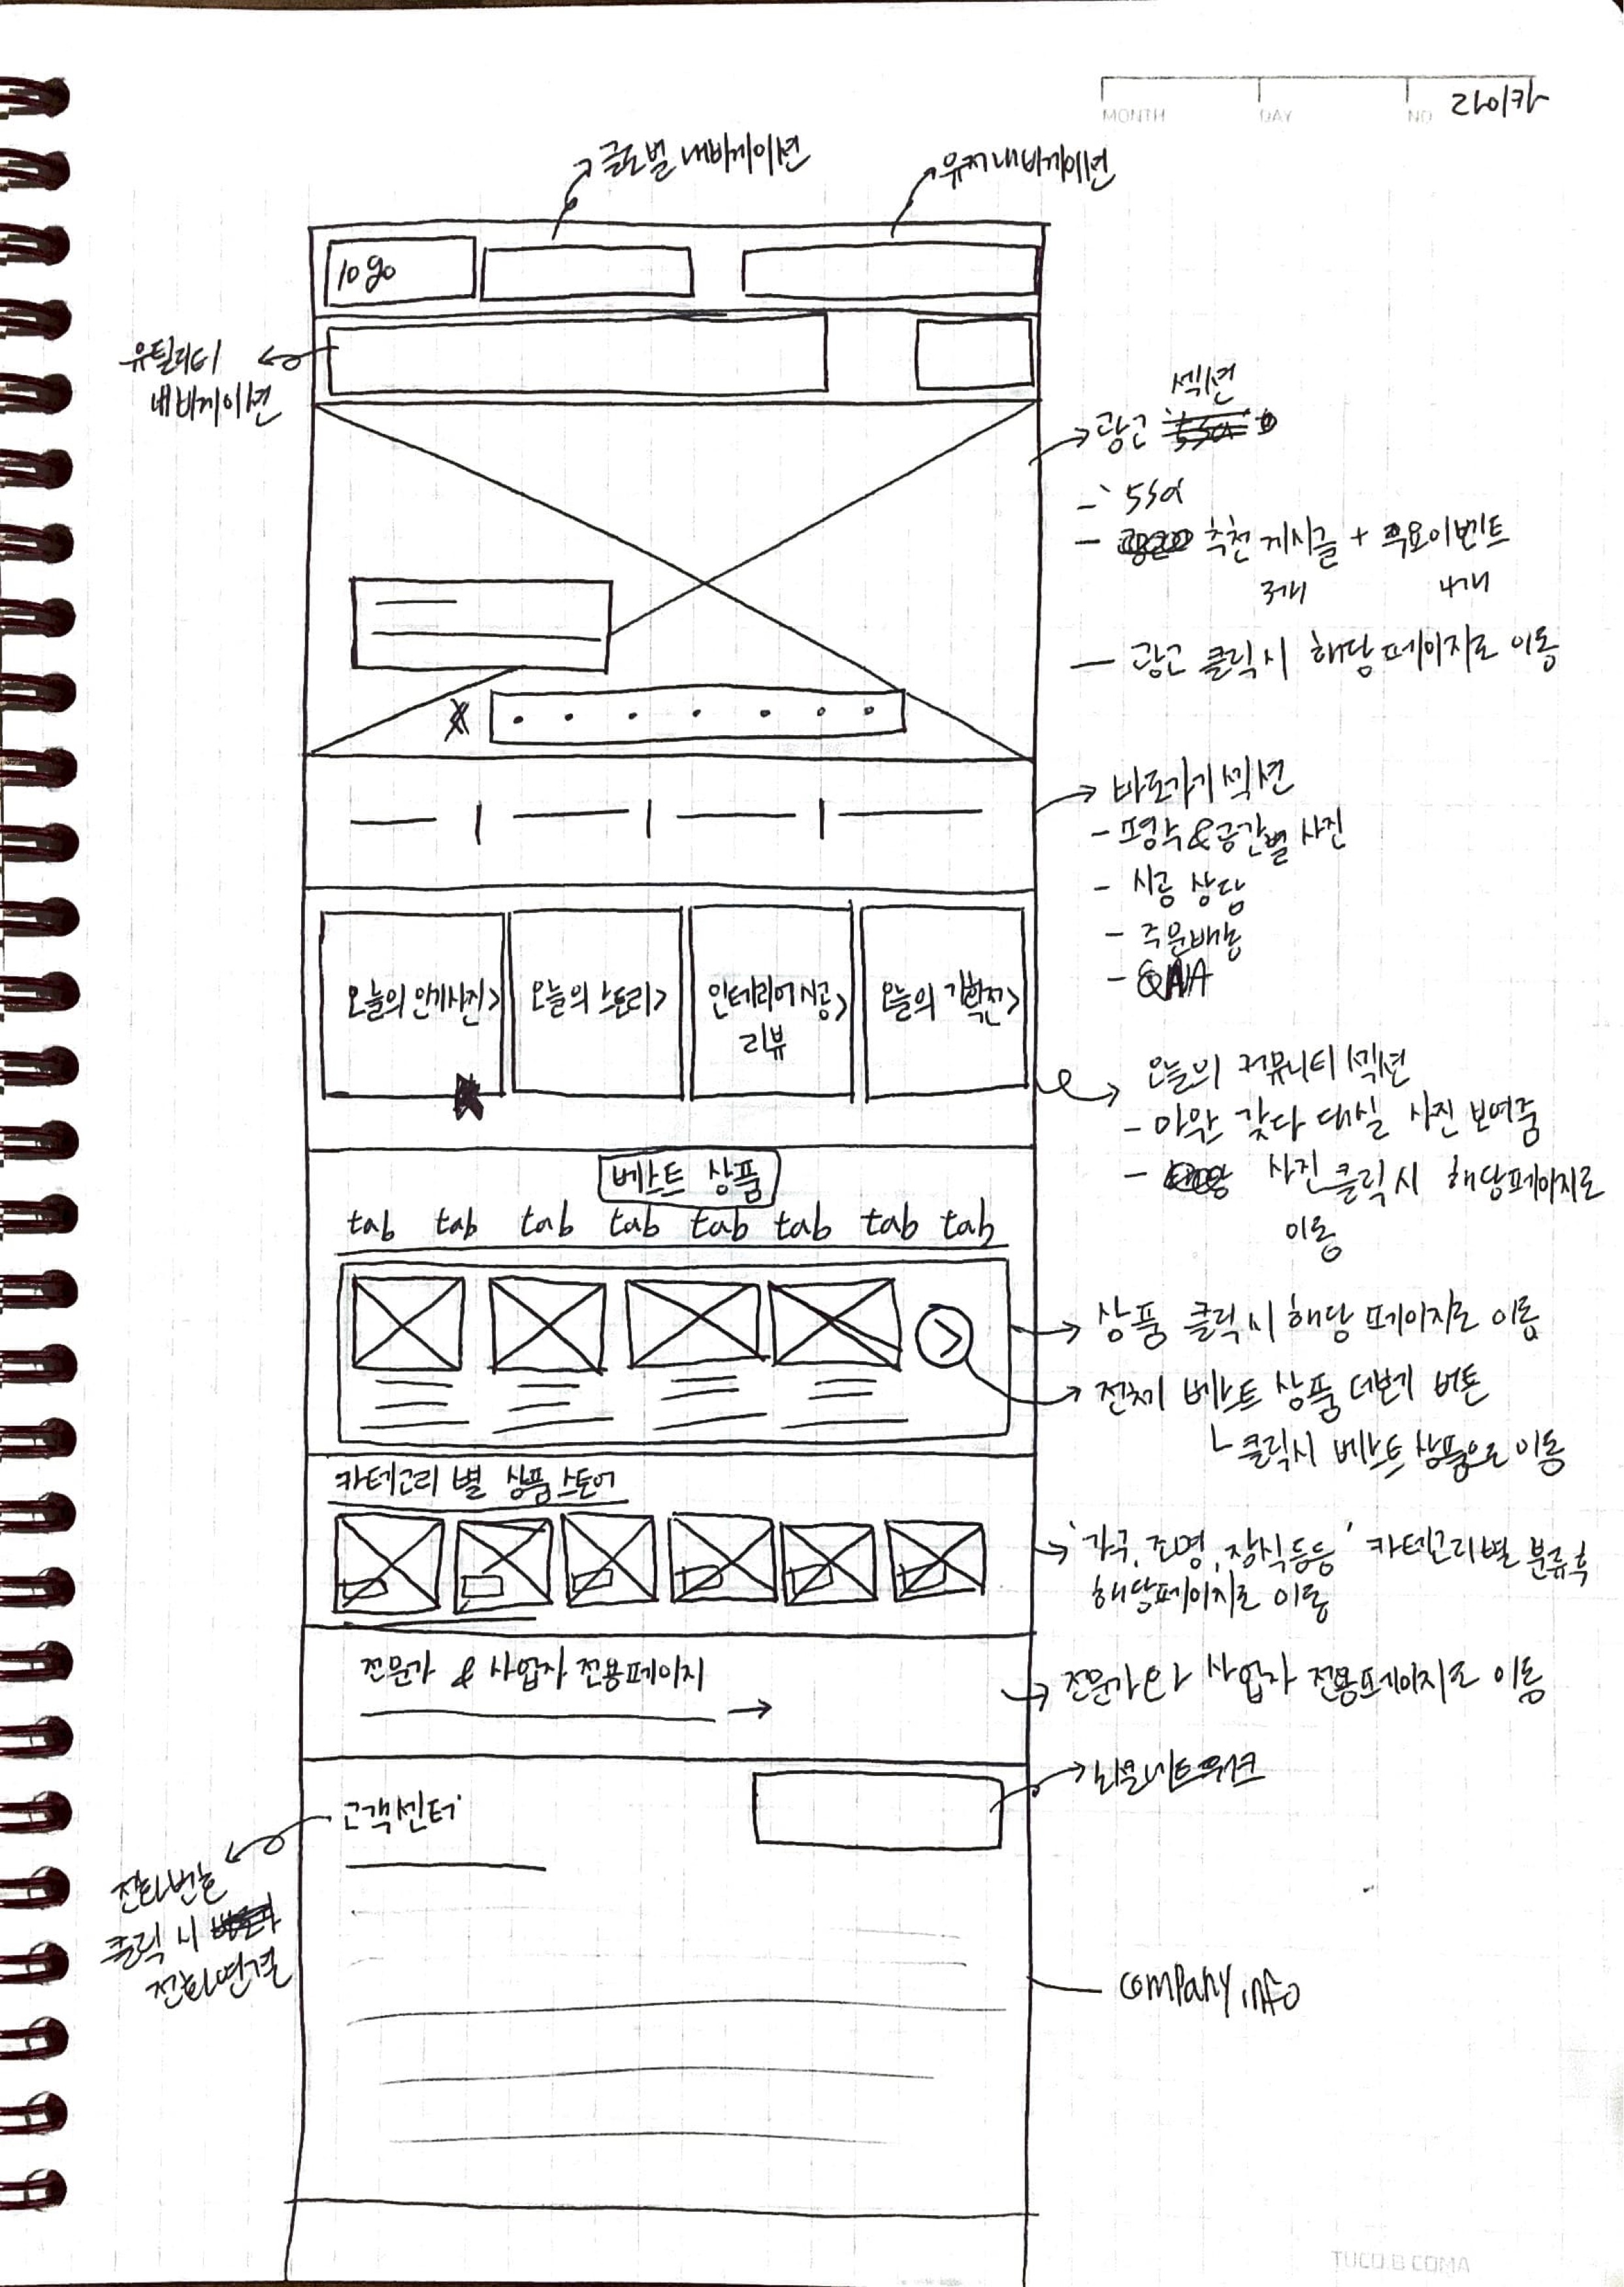 MONTH DAY NO 라이카
글로벌 내비게이션
유저 내비게이션
logo
유틸리티
내비게이션
섹션
광고
- 추천 게시글 + 주요이벤트
3개 4개
- 광고 클릭 시 해당 페이지로 이동
바로가기 섹션
- 평수&공간별 사진
- 시공 상담
- 주문배송
- Q&A
오늘의 인기사진>
오늘의 스토리>
인테리어시공>
리뷰
오늘의 기획전>
오늘의 커뮤니티 섹션
- 마우스 갖다 대실 사진 보여줌
- 사진 클릭 시 해당페이지로
이동
베스트 상품
tab tab tab tab tab tab tab tab
>
상품 클릭 시 해당 페이지로 이동
전체 베스트 상품 더보기 버튼
ㄴ 클릭시 베스트 상품으로 이동
카테고리 별 상품 스토어
'가구, 조명, 장식등등' 카테고리별 분류후
해당페이지로 이동
전문가 & 사업자 전용페이지
전문가와 사업자 전용페이지로 이동
고객센터
전화번호
클릭 시
전화연결
company info
TUCO.B COMA